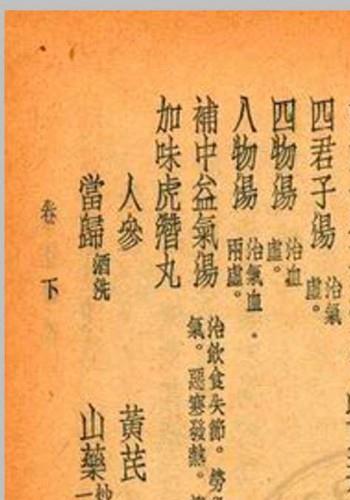 四君子湯 治氣虛。
四物湯 治血虛。
八物湯 治氣血兩虛。
補中益氣湯 治飲食失節。勞
氣。惡寒發熱。
加味虎潛丸
人參 黃芪
當歸酒洗 山藥
卷下